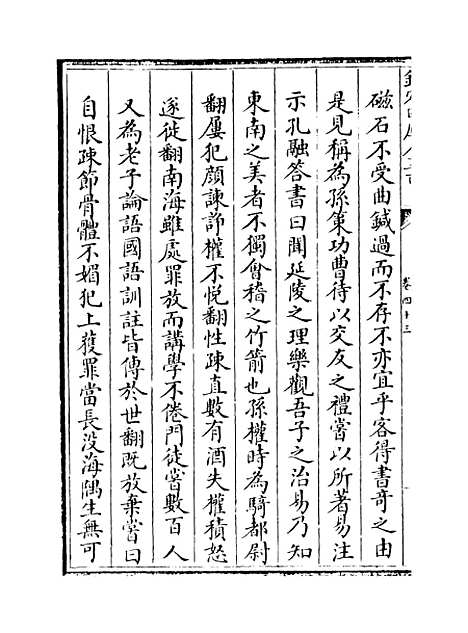 磁石不受曲鍼過而不存不亦宜乎客得書奇之由
是見稱為孫策功曹待以交友之禮嘗以所著易注
示孔融答書曰聞延陵之理樂觀吾子之治易乃知
東南之美者不獨會稽之竹箭也孫權時為騎都尉
翻屢犯顔諫諍權不悦翻性疎直數有酒失權積怒
遂徙翻南海雖處罪放而講學不倦門徒嘗數百人
又為老子論語國語訓註皆傳於世翻既放棄嘗曰
自恨疎節骨體不媚犯上獲罪當長没海隅生無可
卷四十三